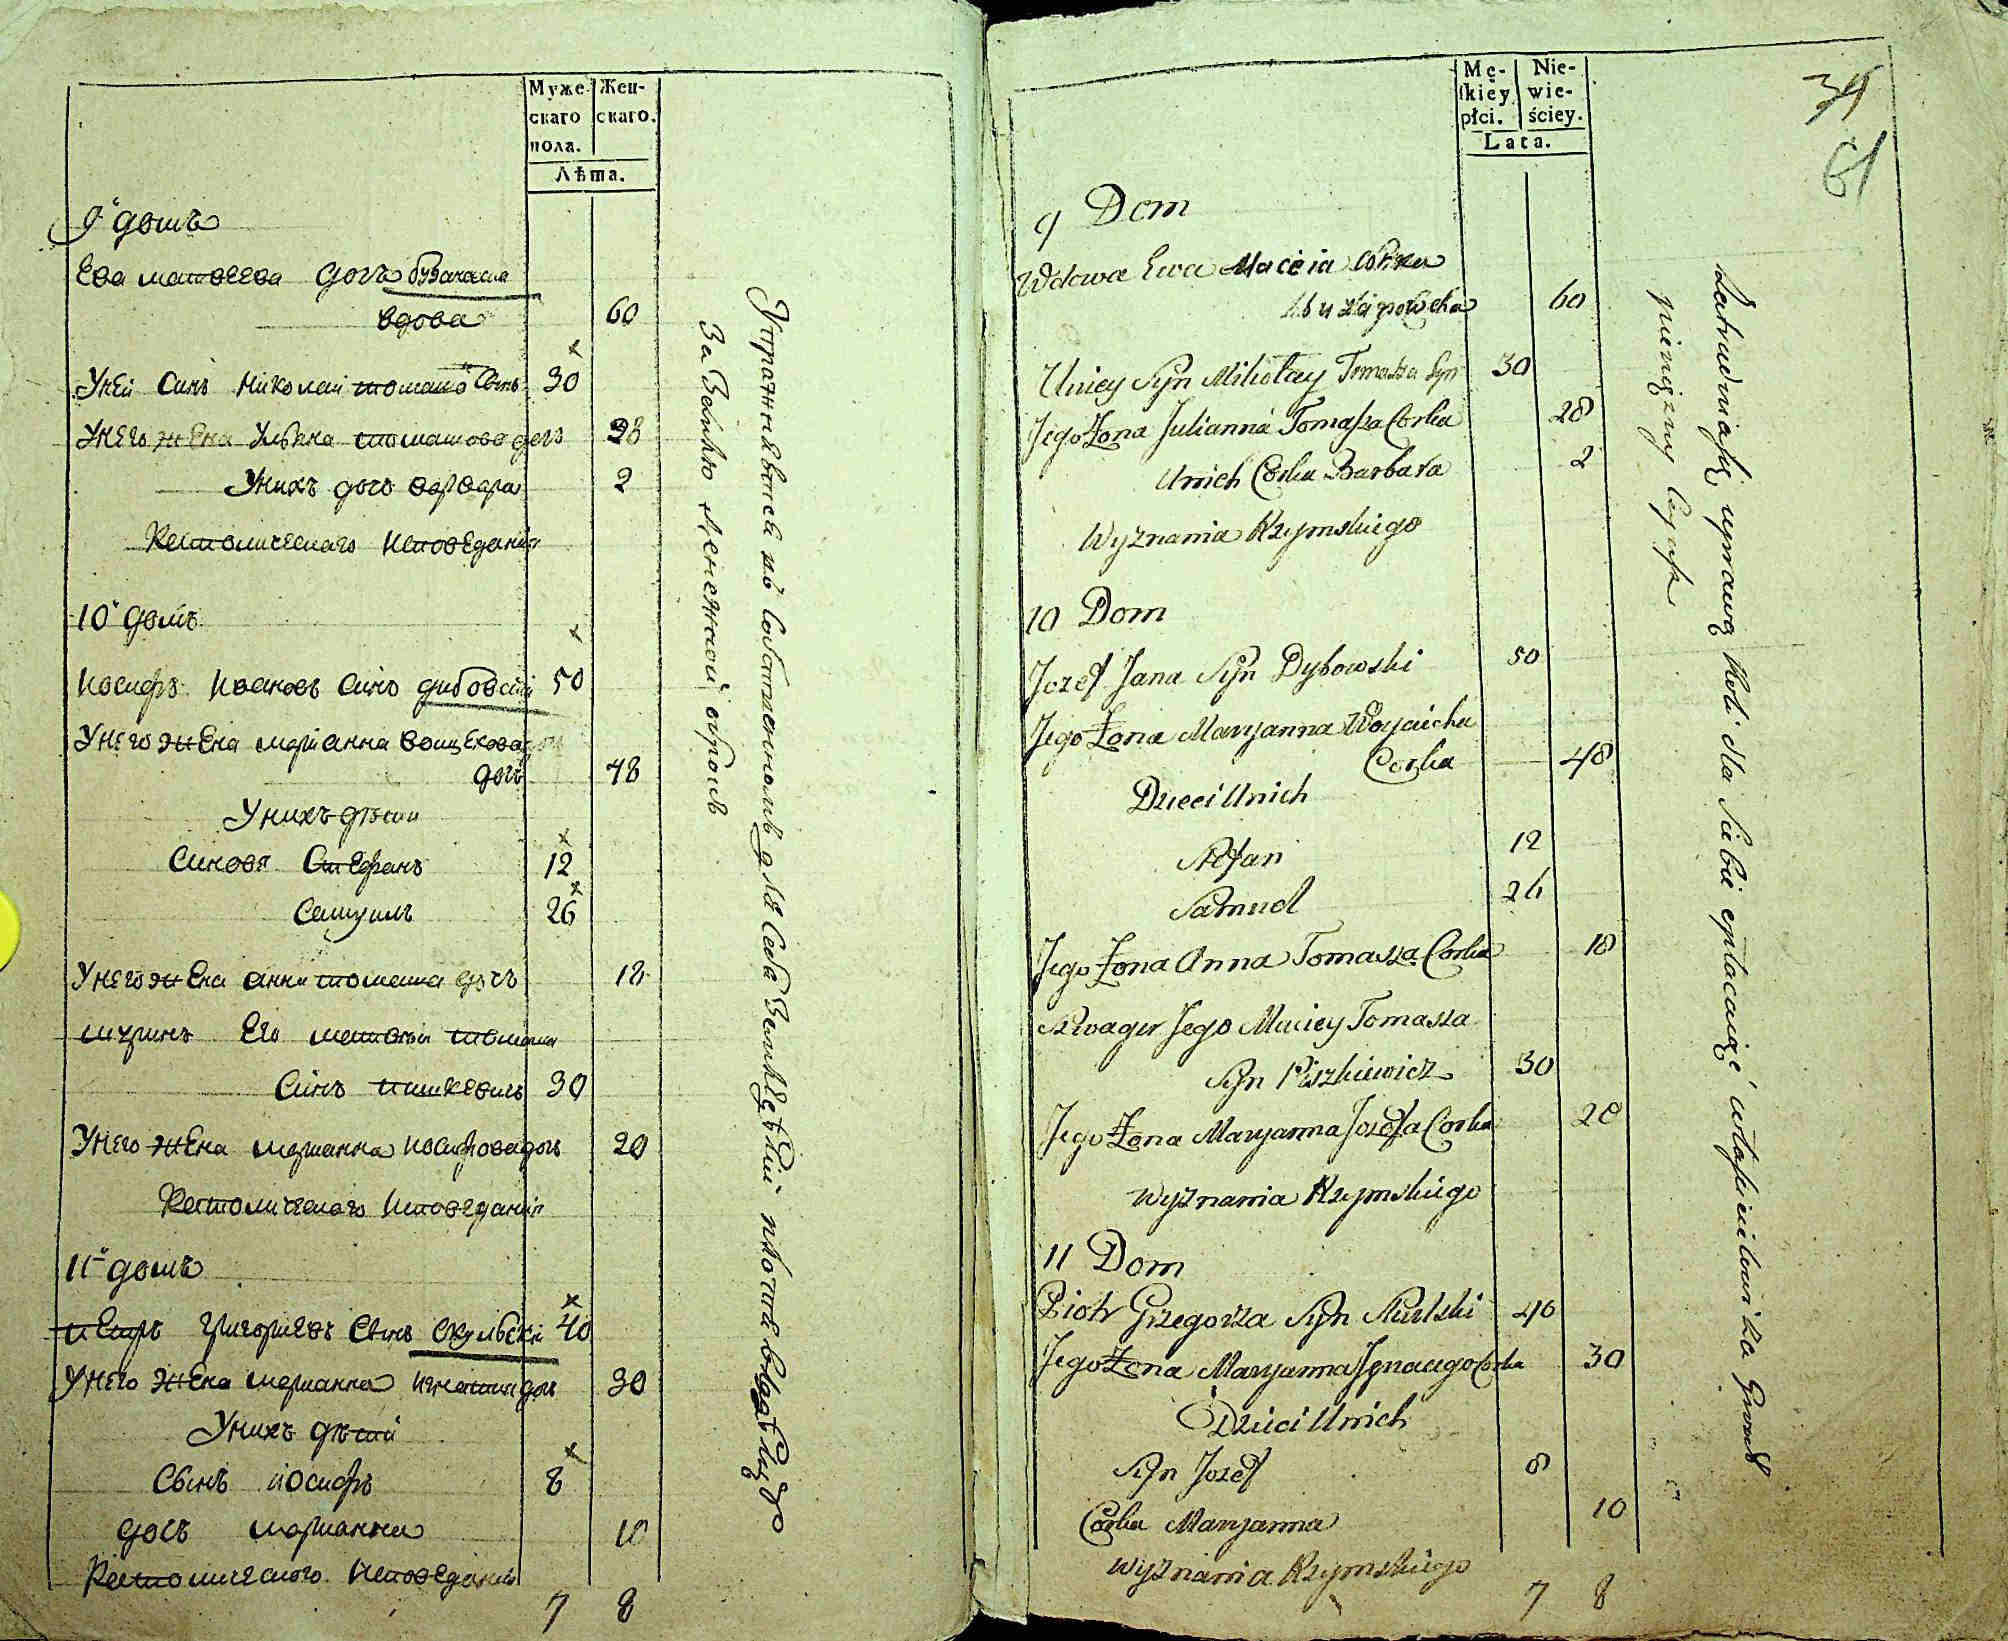 Муже-
скаго
пола.
Жен-
скаго.
Лѣта.
9й домъ
Ева матвеева дочъ
вдова 60
Унеи синъ николаи томашо Сынъ 30
Унего жена Ульяна томашова дочъ 28
Унихъ дочъ варвара 2
Католическаго исповедания
10й домъ
иосифъ ивановъ синъ дибовский 50
Унего жена марианна воицехова
дочъ 48
Унихъ дѣти
Синовя Стефанъ 12
Самуилъ 26
Унего жена анна томаша дочъ 18
шуринъ Его матвеи томаша
Синъ пишкевичъ 30
Унего жена марианна иосифова дочъ 20
Католическаго исповедания
11й домъ
петръ григориевъ Сынъ скульски 40
Унего жена марианна игнатия дочъ 30
Унихъ дѣти
Сынъ иосифъ 8
дочъ марианна 10
Католическаго исповедания
7 8
за землю денежной оброкъ
Mę-
skiey
płci.
Nie-
wie-
ściey.
Lata.
34
61
9 Dom
Wdowa Ewa Macieia Corka
60
Uniey Syn Mikołay Tomasza Syn 30
Jego Żona Julianna Tomasza Corka 28
Unich Corka Barbara 2
Wyznania Rzymskiego
10 Dom
Jozef Jana Syn Dybowski 50
Jego Żona Maryanna Woyciecha
Corka 48
Dzieci Unich
Stefan 12
Samuel 26
Jego Żona Anna Tomasza Corka 18
Szwager Jego Maciey Tomasza
Syn Piszkiewicz 30
Jego Żona Maryanna Jozefa Corka 20
Wyznania Rzymskiego
11 Dom
Piotr Grzegorza Syn Skulski 40
Jego Żona Maryanna Ignacego Corka 30
Dzieci Unich
Syn Jozef 8
Corka Maryanna 10
Wyznania Rzymskiego
7 8
Zatrudniaią się uprawą Roli dla Siebie opłacaiąc właścicielowi za Grunt
pieniężny Czynsz